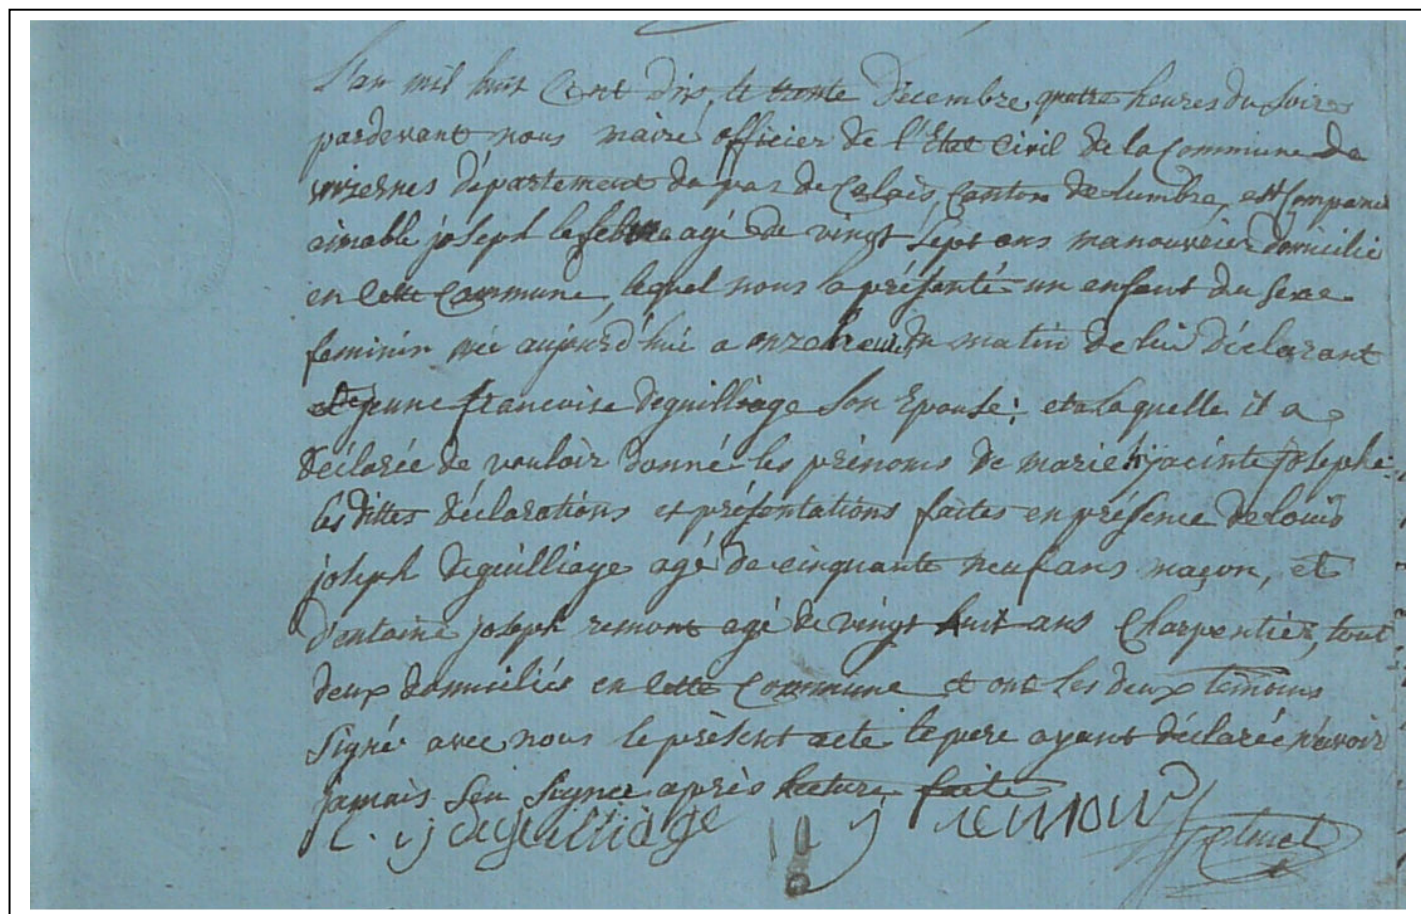 L'an mil huit Cent dix, le trente Décembre quatre heures du soir
pardevant nous maire officier de l'Etat Civil de la Commune de
wizernes département du pas de Calais, Canton de lumbre, est Comparu
aimable joseph lefebvre agé de vingt sept ans manouvrier domicilié
en cette Commune, lequel nous a présenté un enfant du sexe
feminin née aujourd'hui a onze heures du matin de lui déclarant
et de jeune francoise deguilliage son Epouse; et a laquelle il a
déclarée de vouloir donné les prénoms de marie hÿacinte josephe
les dittes déclarations et présentations faites en présence de louis
joseph deguilliage agé de cinquante neuf ans maçon, et
d'entoine joseph remont agé de vingt huit ans Charpentier, tout
deux domiciliés en cette Commune et ont les deux temoins
signé avec nous le présent acte le pere ayant déclarée n'avoir
jamais seu signer après lecture faite
L. j deguilliage j remont